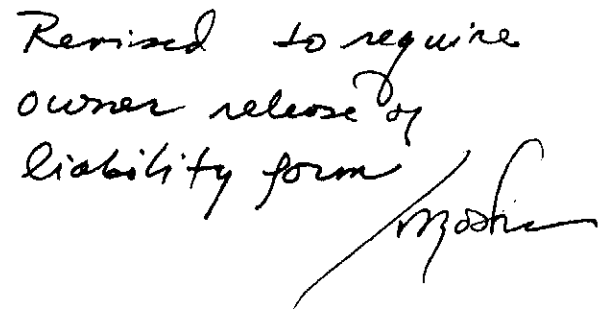 Revised to require
owner release of
liability form